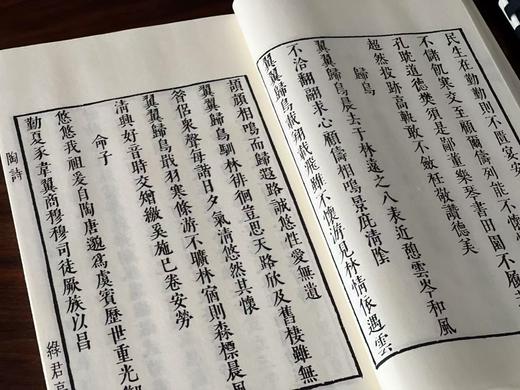 民生在勤勤則不匱宴安
不儲飢寒交至顧爾儔列能不
孔耽道德樊須是鄙董樂琴書田園不
超然投跡高軌敢不斂衽敬讚德美
歸鳥
翼翼歸鳥晨去于林遠之八表近憩雲岑和風
不洽翻翮求心顧儔相鳴景庇清陰
翼翼歸鳥載翔載飛雖不懷游見林情依遇雲
頡頏相鳴而歸遐路誠悠性愛無遺
翼翼歸鳥馴林徘徊豈思天路欣及舊棲雖無
昔侶衆聲每諧日夕氣清悠然其懷
翼翼歸鳥戢羽寒條游不曠林宿則森標晨風
清興好音時交矰繳奚施已卷安勞
命子
悠悠我祖爰自陶唐邈爲虞賓歷世重光御
勤夏豕韋翼商穆穆司徒厥族以昌
陶詩
綠君亭